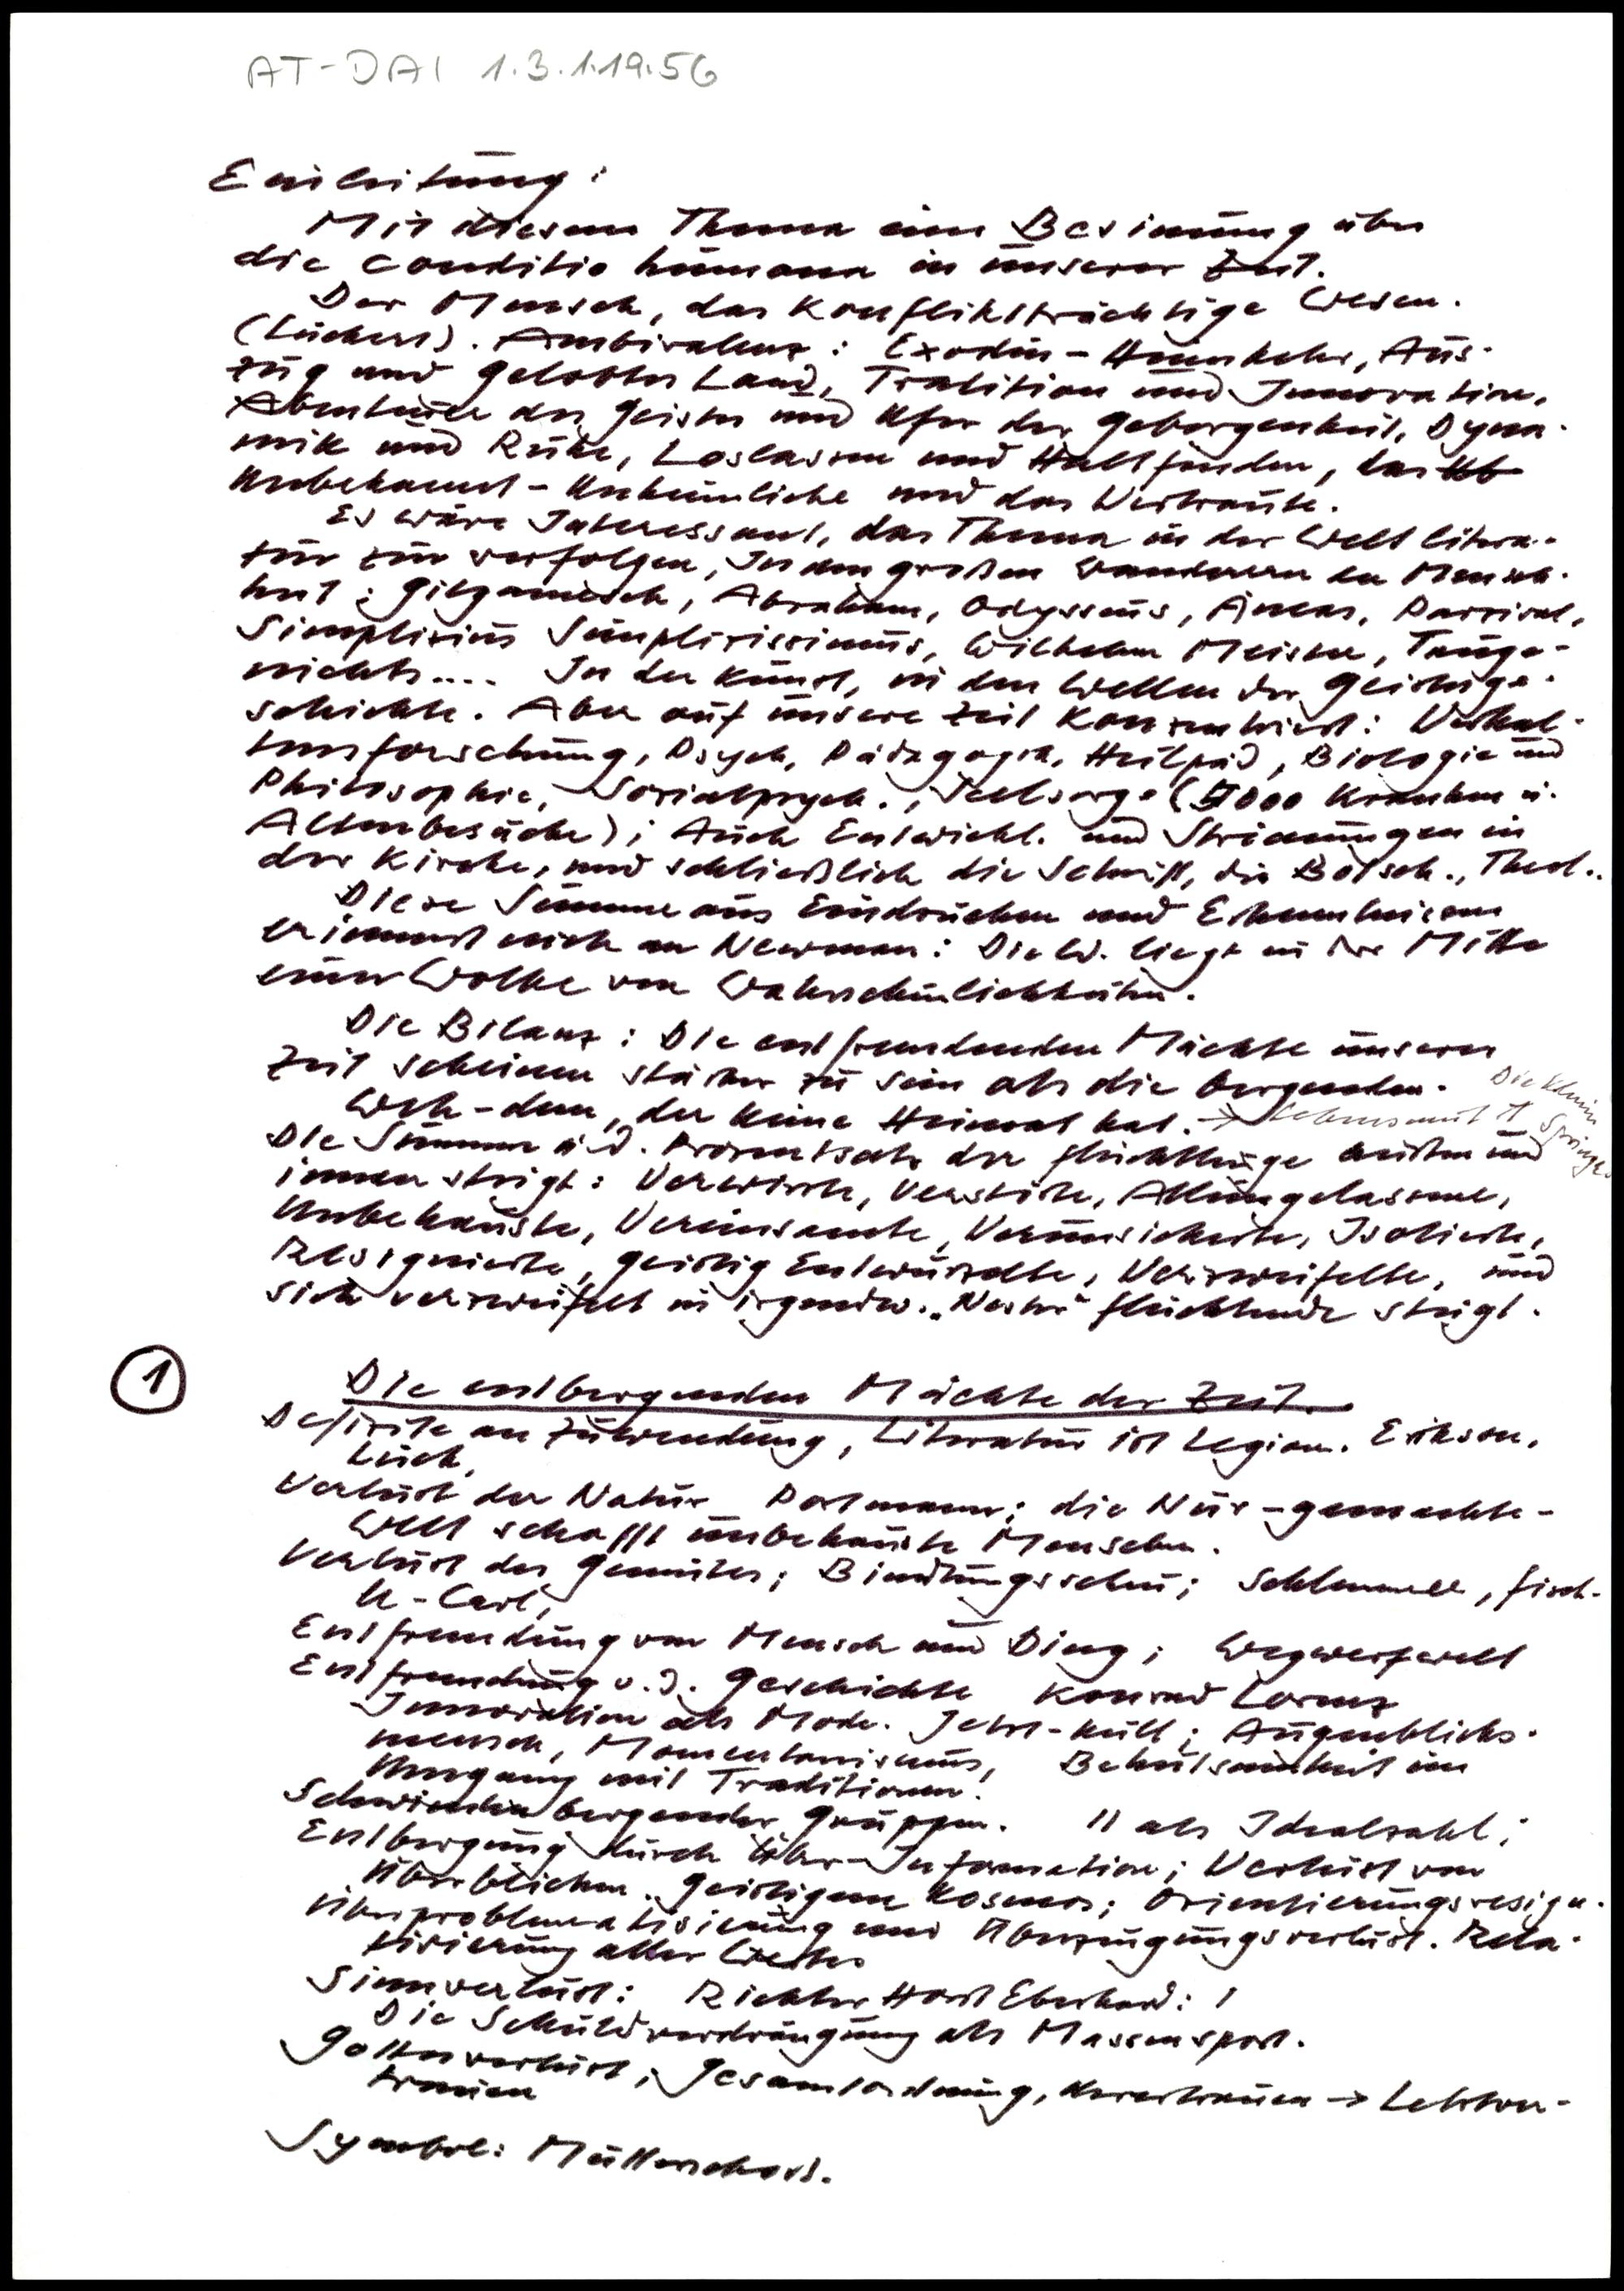 AT-DAI 1.3.1.19.56
Einleitung:
Mit diesem Thema eine Besinnung über
die conditio humana in unserer Zeit.
Der Mensch, das konfliktträchtige Wesen.
(Lückert). Ambivalenz: Exodus - Heimkehr, Aus-
zug und gelobtes Land, Tradition und Innovation,
Abenteuer des Geistes und Ufer der Geborgenheit, Dyna-
mik und Ruhe, Loslassen und Halt finden, das
Unbekannt-Unheimliche und das Vertraute.
Es wäre Interessant, das Thema in der Weltlitera-
tur zu verfolgen, In den großen Wanderern der Mensch-
heit: Gilgamesch, Abraham, Odysseus, Äneas, Parzival,
Simplizius Simplizissimus, Wilhelm Meister, Tauge-
nichts.... In der Kunst, in den Wellen der Geistesge-
schichte. Aber auf unsere Zeit konzentriert: Verhal-
tensforschung, Psych, Pädagogik, Heilpäd, Biologie und
Philosophie, Sozialpsych., Seelsorge (7000 Kranken u.
Altenbesuche); Auch Entwickl. und Strömungen in
der Kirche, und schließlich die Schrift, die Botsch., Theol..
Diese Summe aus Eindrücken und Erkenntnissen
erinnert mich an Newman: Die W. liegt in der Mitte
einer Wolke von Wahrscheinlichkeiten.
Die Bilanz: Die entfremdenden Mächte unserer
Zeit scheinen stärker zu sein als die bergenden.
Weh-dem, der keine Heimat hat. → Lebensmut ↑ Die kleine
Springer
Die Summe u.d. Prozentsatz der Flüchtlinge außen und
innen steigt: Verwirrte, Verstörte, Alleingelassene,
Unbehauste, Vereinsamte, Verunsicherte, Isolierte,
Resignierte, geistig Entwurzelte, Verzweifelte, und
sich verzweifelt in irgendw. „Nester" flüchtende steigt.
1
Die entbergenden Mächte der Zeit.
Defizite an Zuwendung, Literatur ist Legion. Erikson,
Verlust der Natur Portmann: die Nur-gemachte-
Welt schafft unbehauste Menschen.
Verlust des Gemütes; Bindungsscheu; Schlemmer, Fisch-
Entfremdung von Mensch und Ding; Wegwerfwelt
Entfremdung v.d. Geschichte Konrad Lorenz
Innovation als Mode. Jetzt-Kult; Augenblicks-
mensch, Momentanismus, Behutsamkeit im
Umgang mit Traditionen!
Schwinden bergender Gruppen. 11 als Idealzahl;
Entbergung durch Über-Information; Verlust von
Überblicken. Geistigem Kosmos; Orientierungsresign.
Überproblematisierung und Überzeugungsverlust. Rela-
tivierung aller Werte
Sinnverlust: Richter Horst Eberhard: !
Die Schuldverdrängung als Massensport.
Gottesverlust, Gesamtordnung, Urvertrauen → Letztver-
trauen
Symbol: